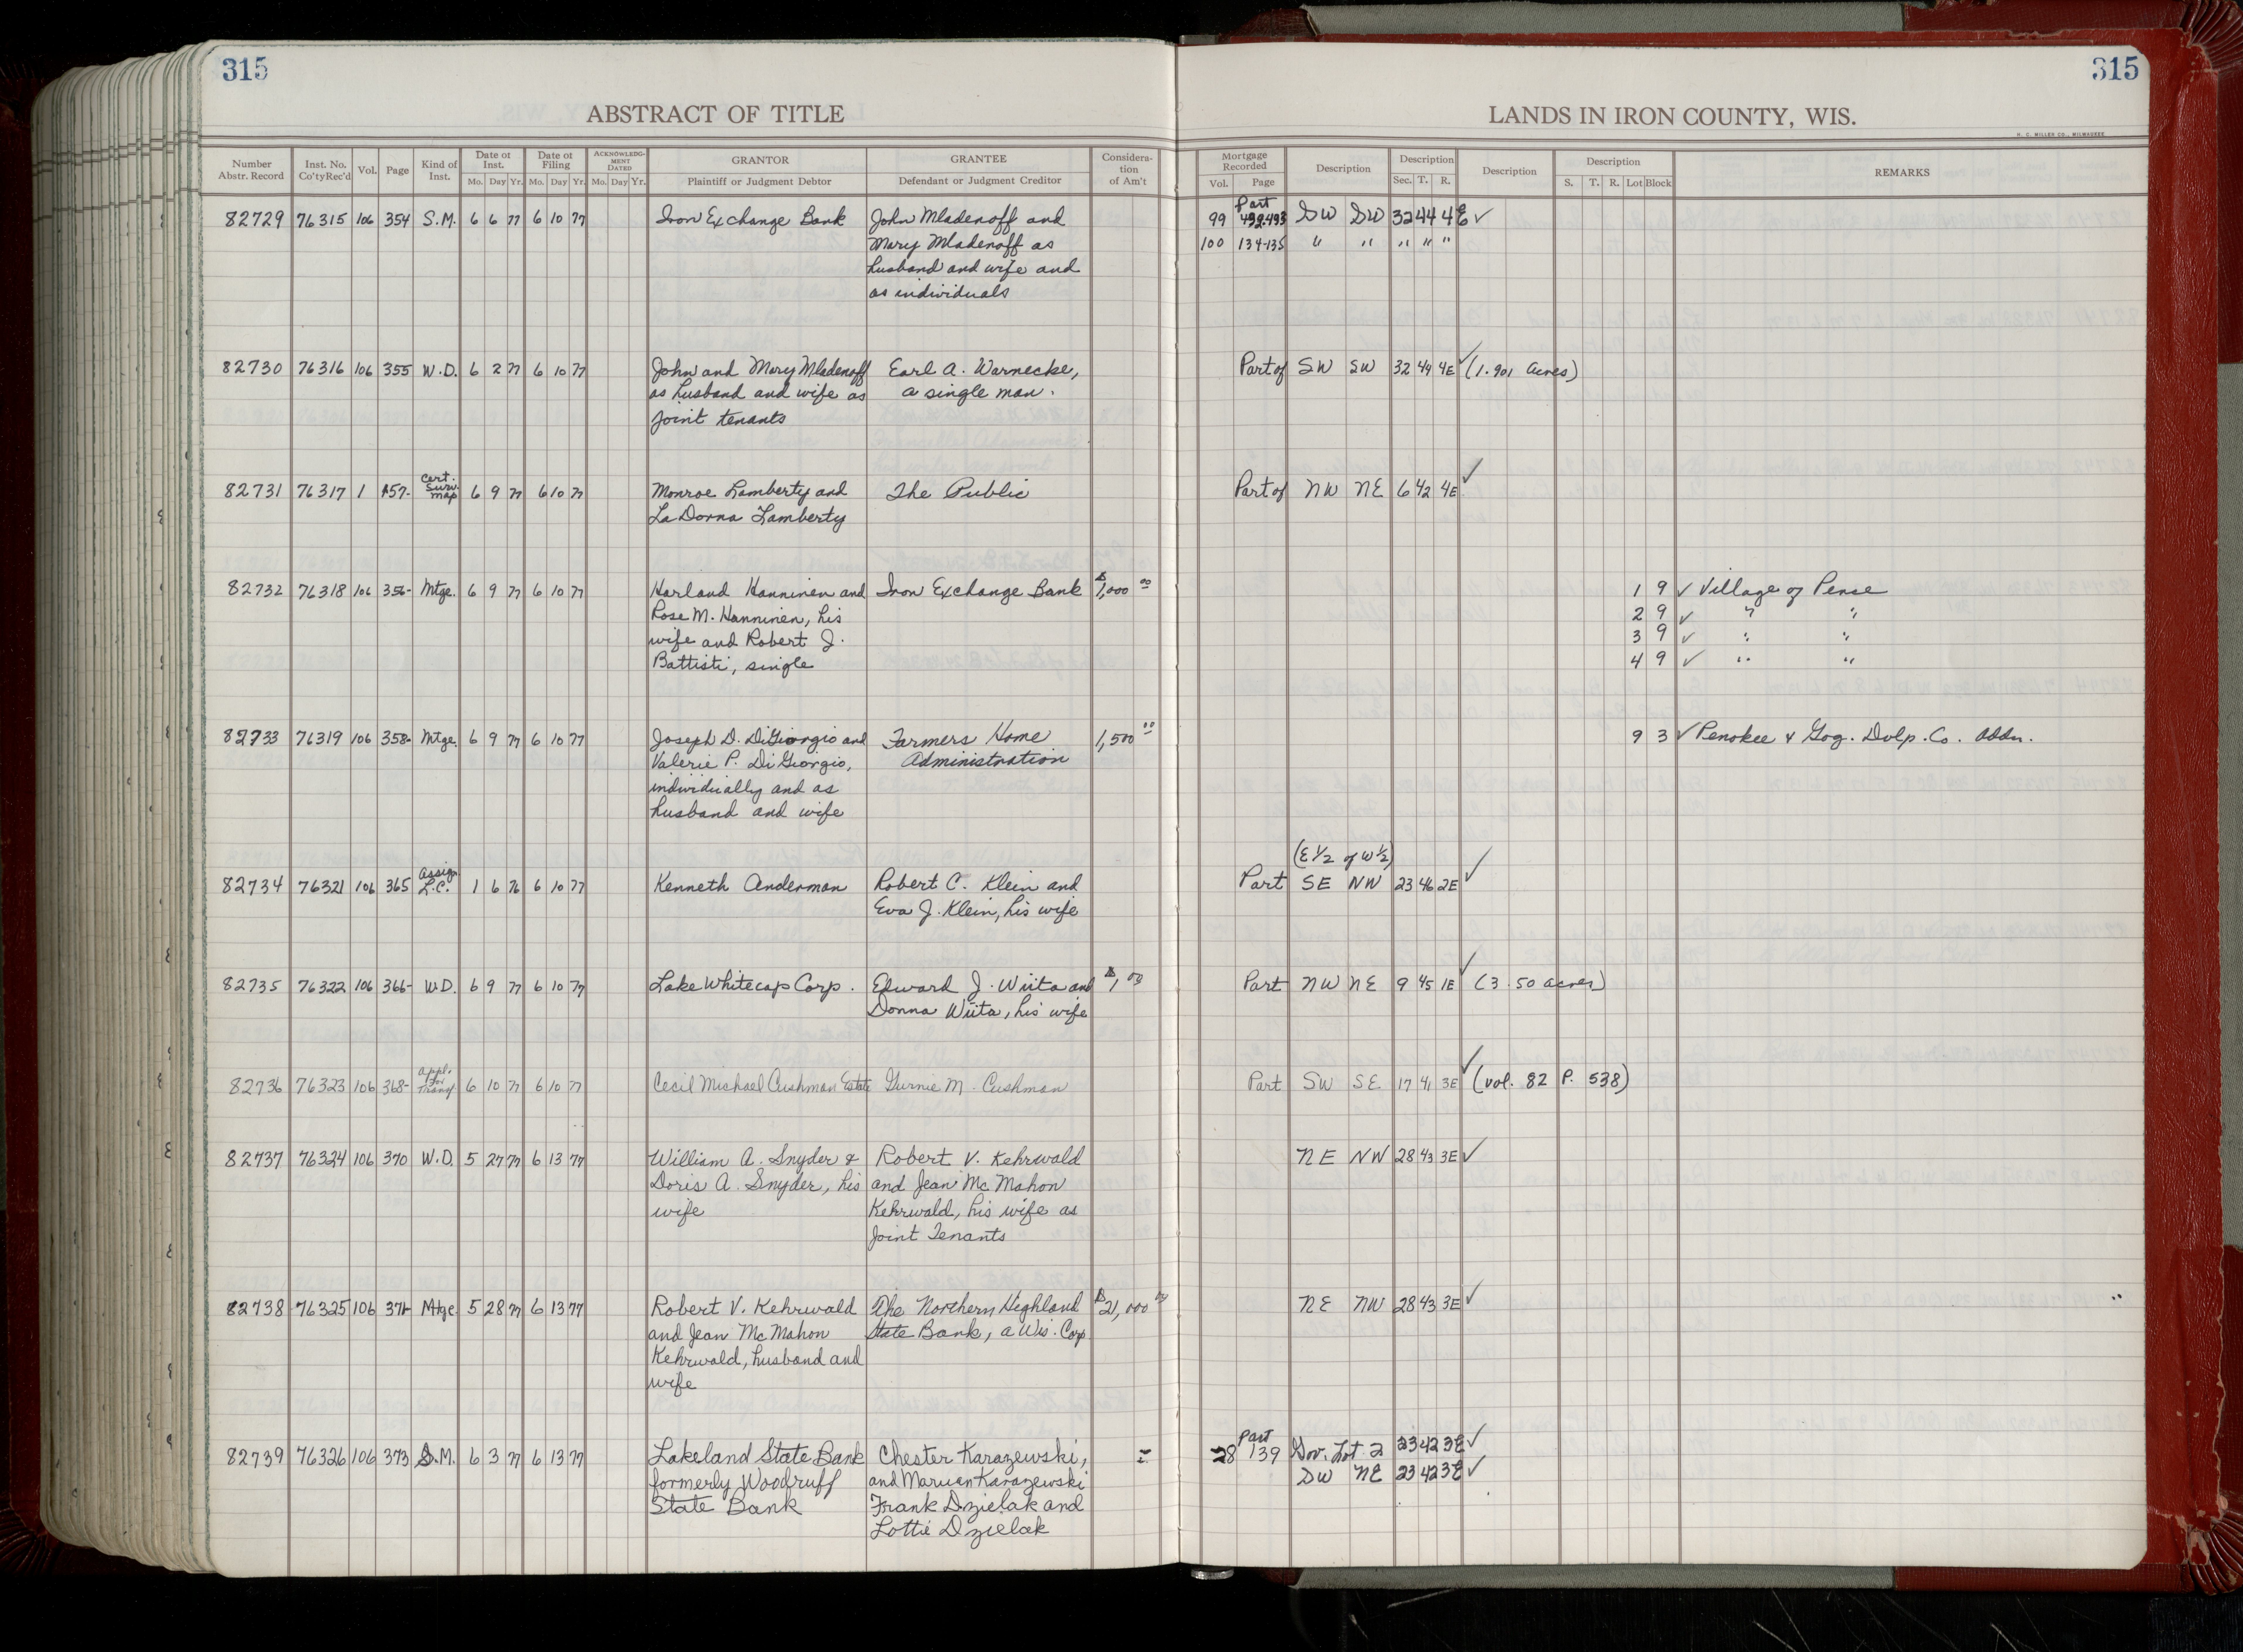 315
315
ABSTRACT OF TITLE
LANDS IN IRON COUNTY, WIS.
H. C. MILLER CO., MILWAUKEE
Number Abstr. Record | Inst. No. Co'ty Rec'd | Vol. | Page | Kind of Inst. | Date of Inst. Mo. Day Yr. | Date of Filing Mo. Day Yr. | ACKNOWLEDGMENT DATED Mo. Day Yr. | GRANTOR Plaintiff or Judgment Debtor | GRANTEE Defendant or Judgment Creditor | Consideration of Am't | Mortgage Recorded Vol. Page | Description | Description Sec. T. R. | Description | Description S. T. R. Lot Block | REMARKS
82729 76315 106 354 S.M. 6 6 77 6 10 77 Iron Exchange Bank John Mladenoff and 99 Part 492-493 SW SW 32 44 4E ✓
Mary Mladenoff as 100 134-135 " " " " "
husband and wife and
as individuals
82730 76316 106 355 W.D. 6 2 77 6 10 77 John and Mary Mladenoff Earl A. Warnecke, Part of SW SW 32 44 4E ✓ (1.901 acres)
as husband and wife as a single man.
joint tenants
82731 76317 1 157- Cert. Surv. map 6 9 77 6 10 77 Monroe Lamberty and The Public Part of NW NE 6 42 4E ✓
La Donna Lamberty
82732 76318 106 356- Mtge. 6 9 77 6 10 77 Harland Hanninen and Iron Exchange Bank $1,000 00 1 9 ✓ Village of Pence
Rose M. Hanninen, his 2 9 ✓ " "
wife and Robert J. 3 9 ✓ " "
Battisti, single 4 9 ✓ " "
82733 76319 106 358- Mtge. 6 9 77 6 10 77 Joseph D. DiGiorgio and Farmers Home 1,500 00 9 3 ✓ Penokee & Gog. Dvlp. Co. Addn.
Valerie P. DiGiorgio, Administration
individually and as
husband and wife
(E 1/2 of W 1/2)
82734 76321 106 365 Assign L.C. 1 6 76 6 10 77 Kenneth Anderman Robert C. Klein and Part SE NW 23 46 2E ✓
Eva J. Klein, his wife
82735 76322 106 366- W.D. 6 9 77 6 10 77 Lake Whitecap Corp. Edward J. Wiita and $1, 00 Part NW NE 9 45 1E ✓ (3.50 acres)
Donna Wiita, his wife
82736 76323 106 368- appl. for Transf. 6 10 77 6 10 77 Cecil Michael Cushman Estate Gurnie M. Cushman Part SW SE 17 41 3E ✓ (vol. 82 P. 538)
82737 76324 106 370 W.D. 5 27 77 6 13 77 William A. Snyder & Robert V. Kehrwald NE NW 28 43 3E ✓
Doris A. Snyder, his and Jean McMahon
wife Kehrwald, his wife as
Joint Tenants
82738 76325 106 371- Mtge. 5 28 77 6 13 77 Robert V. Kehrwald The Northern Highland $21,000 00 NE NW 28 43 3E ✓
and Jean McMahon State Bank, a Wis. Corp
Kehrwald, husband and
wife
82739 76326 106 373 S.M. 6 3 77 6 13 77 Lakeland State Bank Chester Karazewski, 28 Part 139 Gov. Lot 2 23 42 3E ✓
formerly Woodruff and Karazewski SW NE 23 42 3E ✓
State Bank Frank Dzielak and
Lottie Dzielak